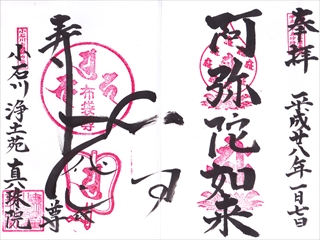 奉拝
平成廿八年一月七日
阿弥陀如来
寿
尊
布袋尊
小石川 浄土苑 真珠院